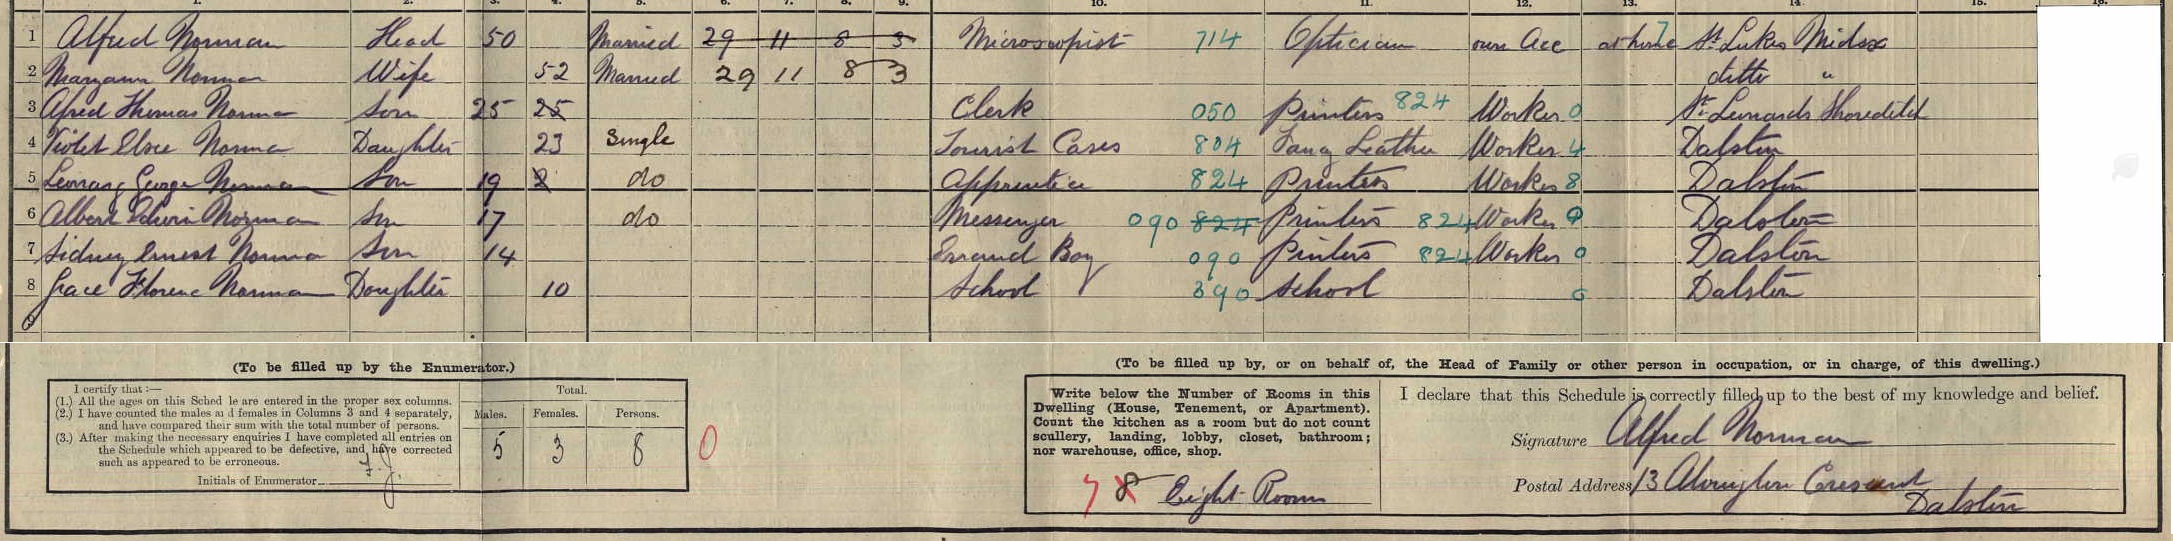 1. 2. 3. 4. 5. 6. 7. 8. 9. 10. 11. 12. 13. 14. 15. 16.
1 Alfred Norman Head 50 Married 29 11 8 3 Microscopist 714 Optician own Acc at home 7 St Lukes Midsx
2 Maryann Norman Wife 52 Married 29 11 8 3 ditto "
3 Alfred Thomas Norman Son 25 25 Clerk 050 Printers 824 Worker 0 St Leonards Shoreditch
4 Violet Elsie Norman Daughter 23 Single Tourist Cases 804 Fancy Leather Worker 4 Dalston
5 George Norman Son 19 2 do Apprentice 824 Printers Worker 8 Dalston
6 Albert Edwin Norman Son 17 do Messenger 090 824 Printers 824 Worker 0 Dalston
7 Sidney Ernest Norman Son 14 Errand Boy 090 Printers 824 Worker 0 Dalston
8 Grace Florence Norman Daughter 10 School 390 School 0 Dalston
9
(To be filled up by the Enumerator.)
I certify that :—
(1.) All the ages on this Sched le are entered in the proper sex columns.
(2.) I have counted the males and females in Columns 3 and 4 separately,
and have compared their sum with the total number of persons.
(3.) After making the necessary enquiries I have completed all entries on
the Schedule which appeared to be defective, and have corrected
such as appeared to be erroneous.
Initials of Enumerator
Total.
Males. Females. Persons.
5 3 8 0
(To be filled up by, or on behalf of, the Head of Family or other person in occupation, or in charge, of this dwelling.)
Write below the Number of Rooms in this
Dwelling (House, Tenement, or Apartment).
Count the kitchen as a room but do not count
scullery, landing, lobby, closet, bathroom;
nor warehouse, office, shop.
8 Eight Room
I declare that this Schedule is correctly filled up to the best of my knowledge and belief.
Signature Alfred Norman
Postal Address 13 Alvington Crescent
Dalston